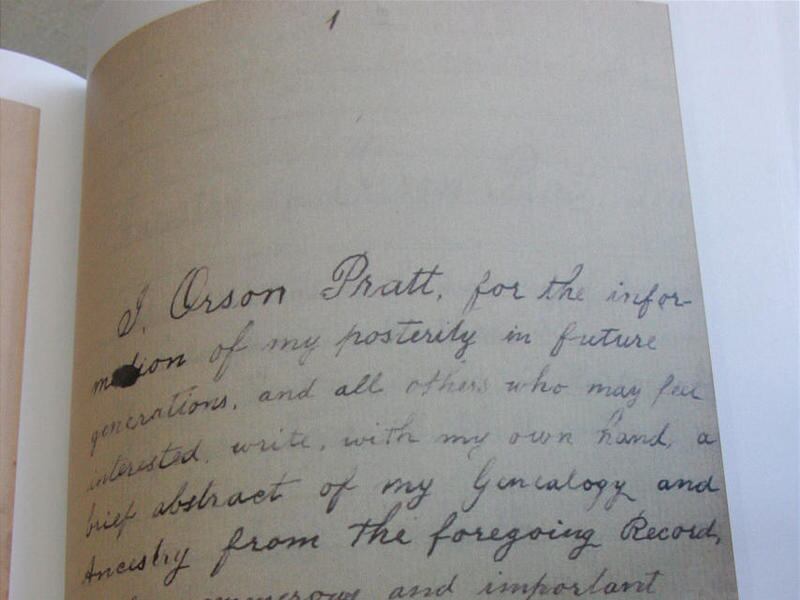 1
I, Orson Pratt, for the infor-
mation of my posterity in future
generations, and all others who may feel
interested, write, with my own hand, a
brief abstract of my Genealogy and
Ancestry from the foregoing Record,
numerous and important